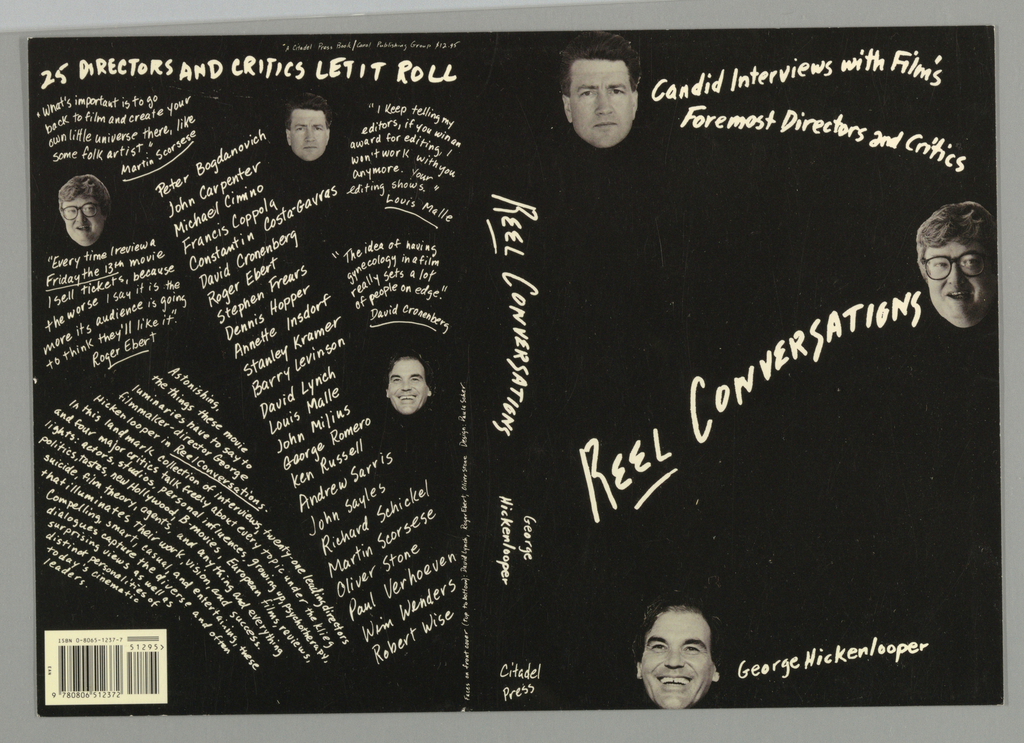 "A Citadel Press Book/Carol Publishing Group $12.95
25 DIRECTORS AND CRITICS LET IT ROLL
"What's important is to go
back to film and create your
own little universe there, like
some folk artist."
Martin Scorsese
"I keep telling my
editors, if you win an
award for editing, I
won't work with you
anymore. Your
editing shows."
Louis Malle
"Every time I review a
Friday the 13th movie
I sell tickets, because
the worse I say it is the
more its audience is going
to think they'll like it."
Roger Ebert
"The idea of having
gynecology in a film
really gets a lot
of people on edge."
David Cronenberg
Peter Bogdanovich
John Carpenter
Michael Cimino
Francis Coppola
Constantin Costa-Gavras
David Cronenberg
Roger Ebert
Stephen Frears
Dennis Hopper
Annette Insdorf
Stanley Kramer
Barry Levinson
David Lynch
Louis Malle
John Milius
George Romero
Ken Russell
Andrew Sarris
John Sayles
Richard Schickel
Martin Scorsese
Oliver Stone
Paul Verhoeven
Wim Wenders
Robert Wise
Astonishing,
the things these movie
luminaries have to say to
filmmaker-director George
Hickenlooper in Reel Conversations.
In this landmark collection of interviews, twenty-one leading directors
and four major critics talk freely about every topic under the klieg
lights: actors, studios, personal influences, growing up, psychotherapy,
politics, tastes, new Hollywood, B-movies, European films, reviews,
suicide, film theory, agents, and anything and everything
that illuminates their work, vision, and success.
Compelling, smart, casual and entertaining, these
dialogues capture the diverse and often
surprising views as well as
distinct personalities of
today's cinematic
leaders
ISBN 0-8065-1237-7
51295>
9 780806 512372
Faces on front cover (top to bottom): David Lynch, Roger Ebert, Oliver Stone Design: Paula Scher
REEL CONVERSATIONS
George
Hickenlooper
Citadel
Press
Candid Interviews with Film's
Foremost Directors and Critics
REEL CONVERSATIONS
George Hickenlooper